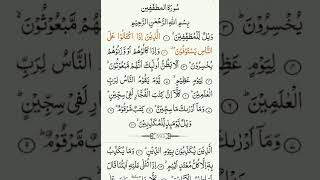 سُورَةُ المطففين
بِسْمِ اللَّهِ الرَّحْمَٰنِ الرَّحِيمِ
وَيْلٌ لِّلْمُطَفِّفِينَ ۝ الَّذِينَ إِذَا اكْتَالُوا عَلَى
النَّاسِ يَسْتَوْفُونَ ۝ وَإِذَا كَالُوهُمْ أَو وَّزَنُوهُمْ
يُخْسِرُونَ ۝ أَلَا يَظُنُّ أُولَٰئِكَ أَنَّهُم مَّبْعُوثُونَ ۝
لِيَوْمٍ عَظِيمٍ ۝ يَوْمَ يَقُومُ النَّاسُ لِرَبِّ
الْعَالَمِينَ ۝ كَلَّا إِنَّ كِتَابَ الْفُجَّارِ لَفِي سِجِّينٍ ۝
وَمَا أَدْرَاكَ مَا سِجِّينٌ ۝ كِتَابٌ مَّرْقُومٌ ۝
وَيْلٌ يَوْمَئِذٍ لِّلْمُكَذِّبِينَ ۝
الَّذِينَ يُكَذِّبُونَ بِيَوْمِ الدِّينِ ۝ وَمَا يُكَذِّبُ
بِهِ إِلَّا كُلُّ مُعْتَدٍ أَثِيمٍ ۝ إِذَا تُتْلَىٰ عَلَيْهِ آيَاتُنَا قَالَ